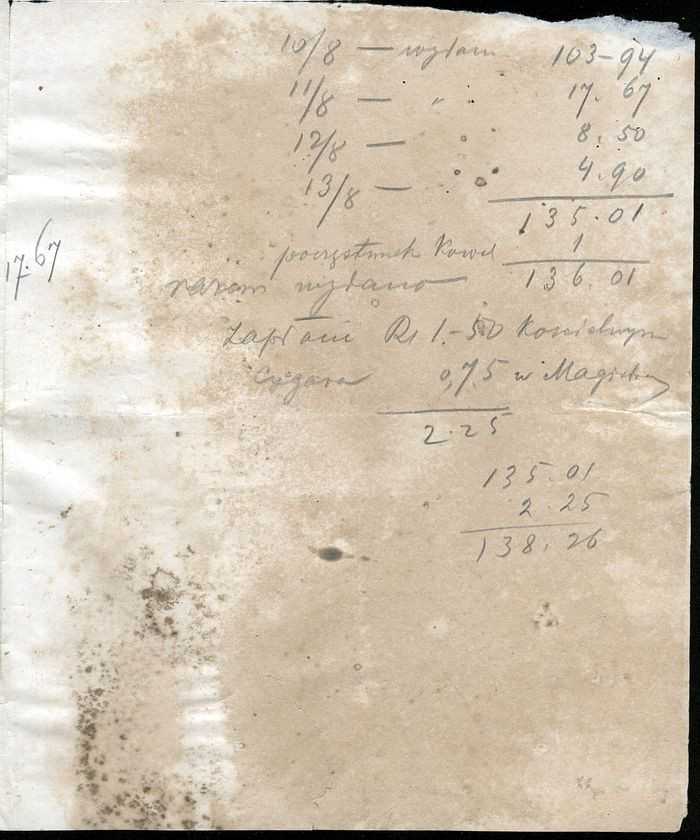 10/8 — wydan 103-94
11/8 — " 17. 67
12/8 — 8. 50
13/8 — 4.90
135.01
poczęstunek Kowel 1
17.67
razem wydano 136.01
Zapłam Rs 1.-50 Kościelnym
Cygara 0,75 w Magielny
2.25
135.01
2.25
138.26